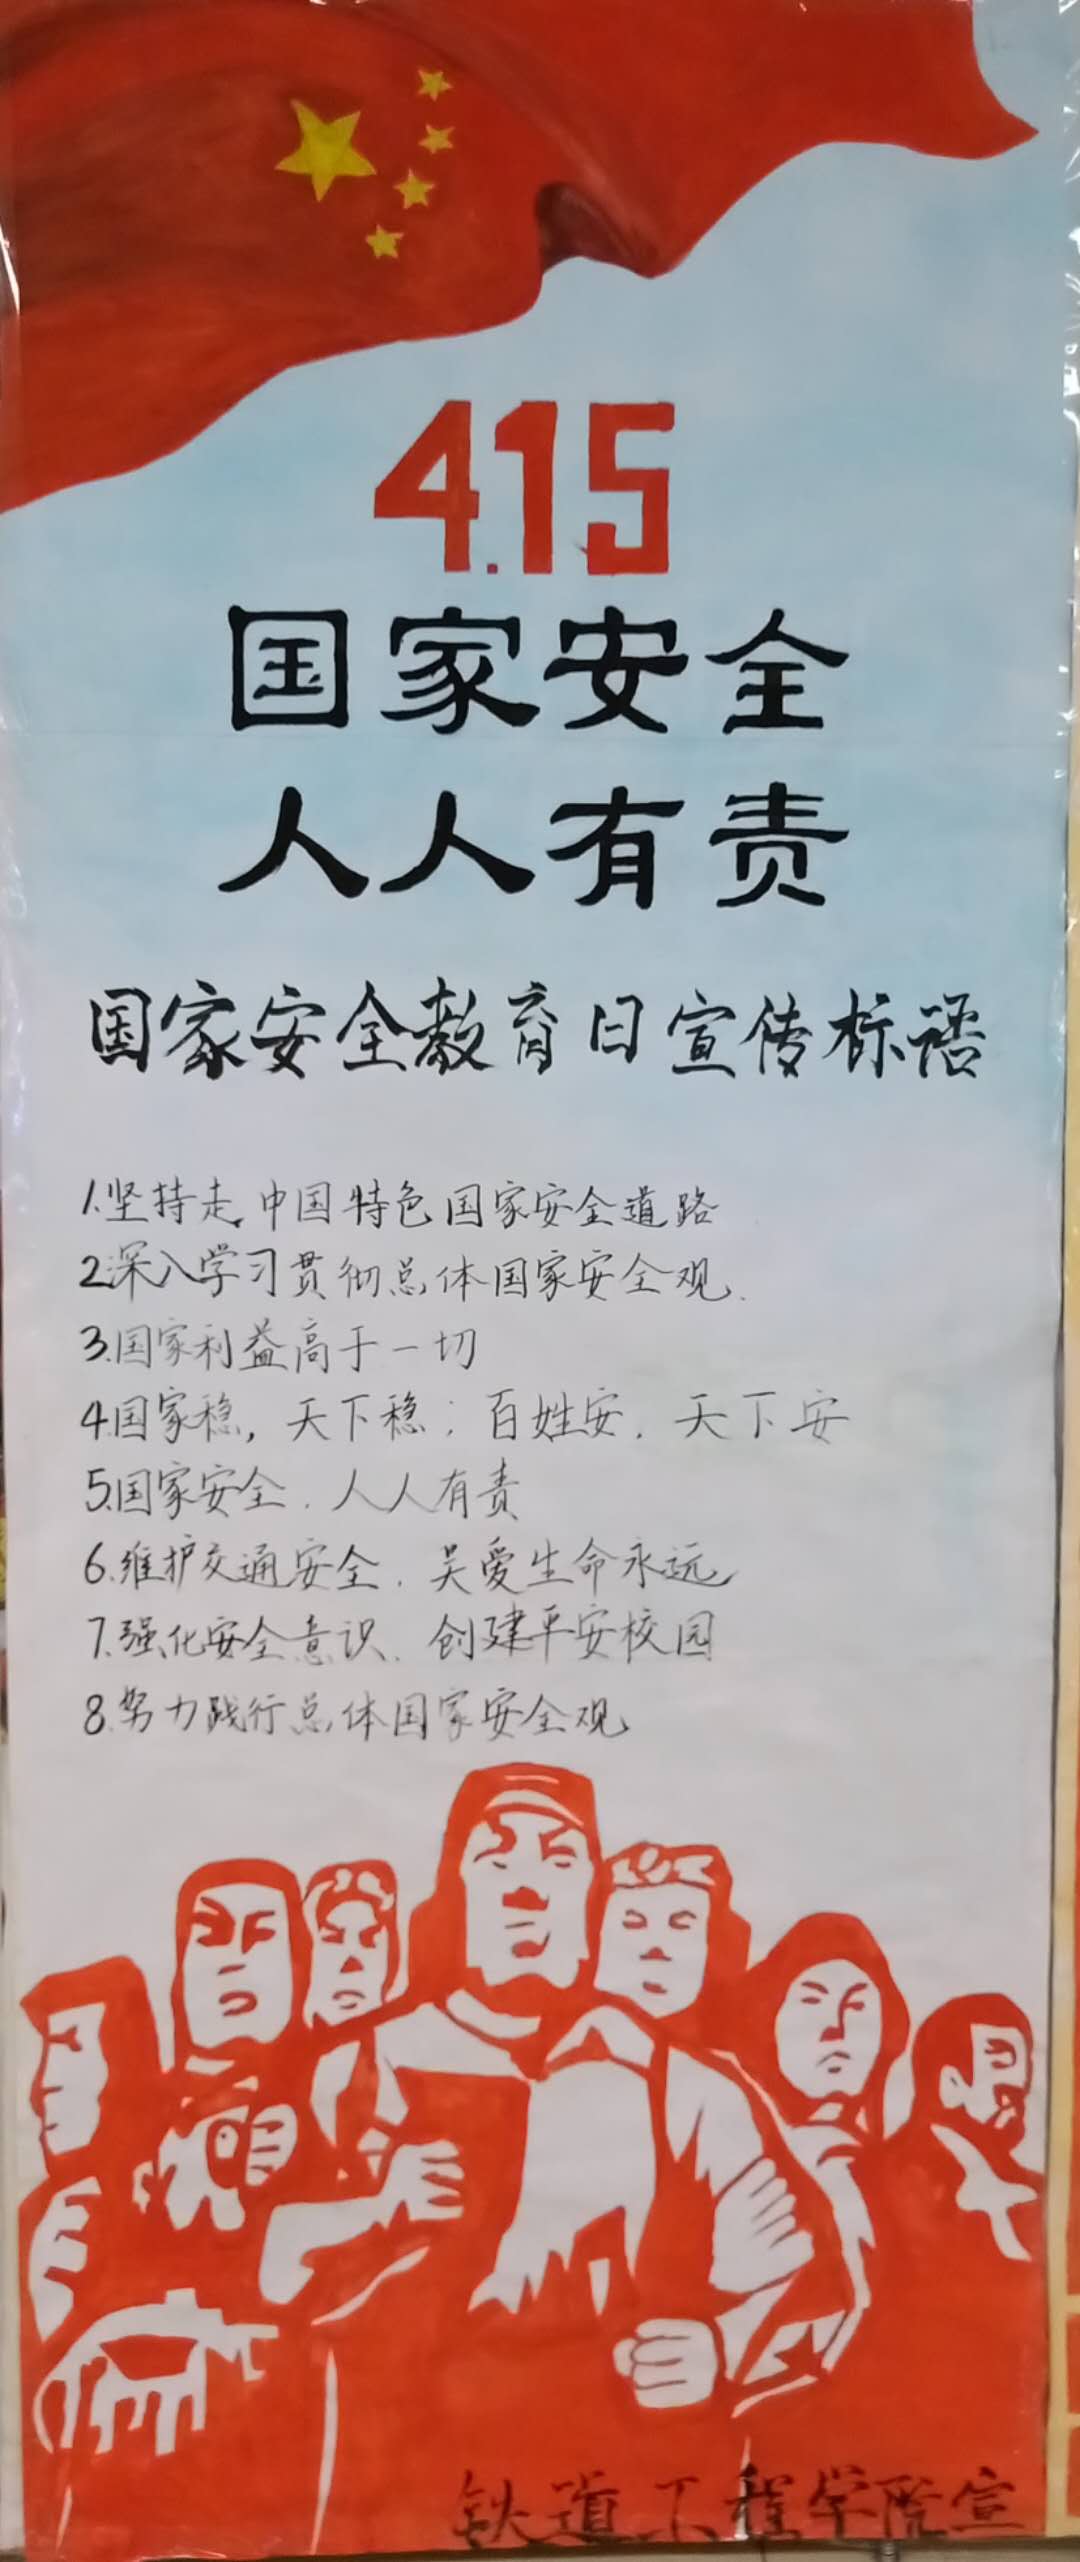 4.15
国家安全
人人有责
国家安全教育日宣传标语
1.坚持走中国特色国家安全道路
2.深入学习贯彻总体国家安全观.
3.国家利益高于一切
4.国家稳,天下稳;百姓安,天下安
5.国家安全,人人有责
6.维护交通安全,关爱生命永远
7.强化安全意识,创建平安校园
8.努力践行总体国家安全观
铁道工程学院宣